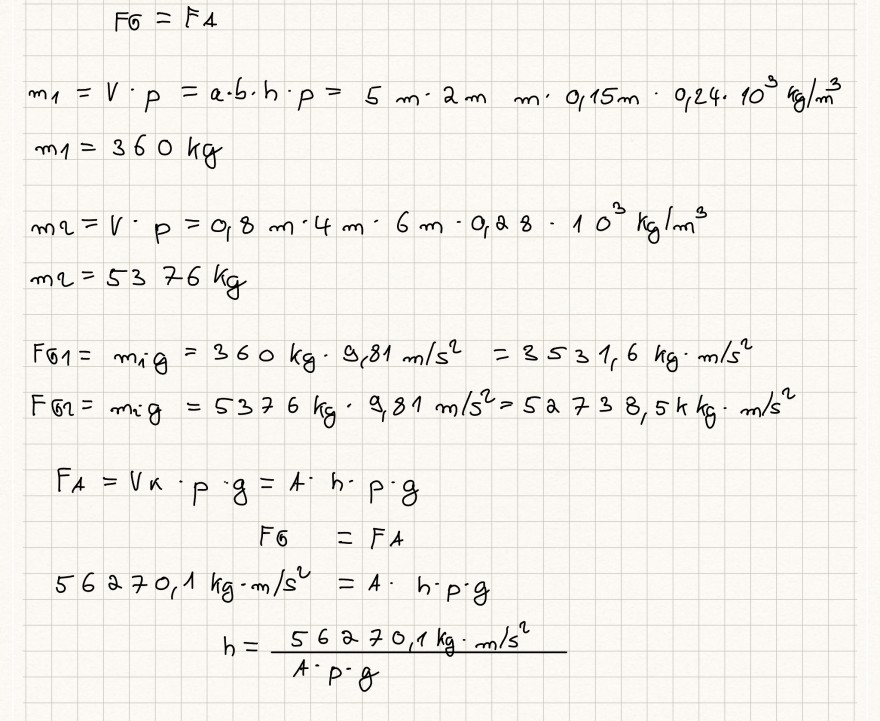 FG = FA
m1 = V · p = a·b·h·p = 5 m· 2m m· 0,15m · 0,24· 10³ kg/m³
m1 = 360 kg
m2 = V· p = 0,8 m·4 m· 6 m·0,28 · 10³ kg/m³
m2 = 5376 kg
FG1 = m₁g = 360 kg· 9,81 m/s² = 3531,6 kg·m/s²
FG2 = m₂g = 5376 kg· 9,81 m/s² = 52738,5k kg· m/s²
FA = VK ·p ·g = A· h· p·g
FG = FA
56270,1 kg·m/s² = A· h·p·g
h = 56270,1 kg· m/s²
A· p· g